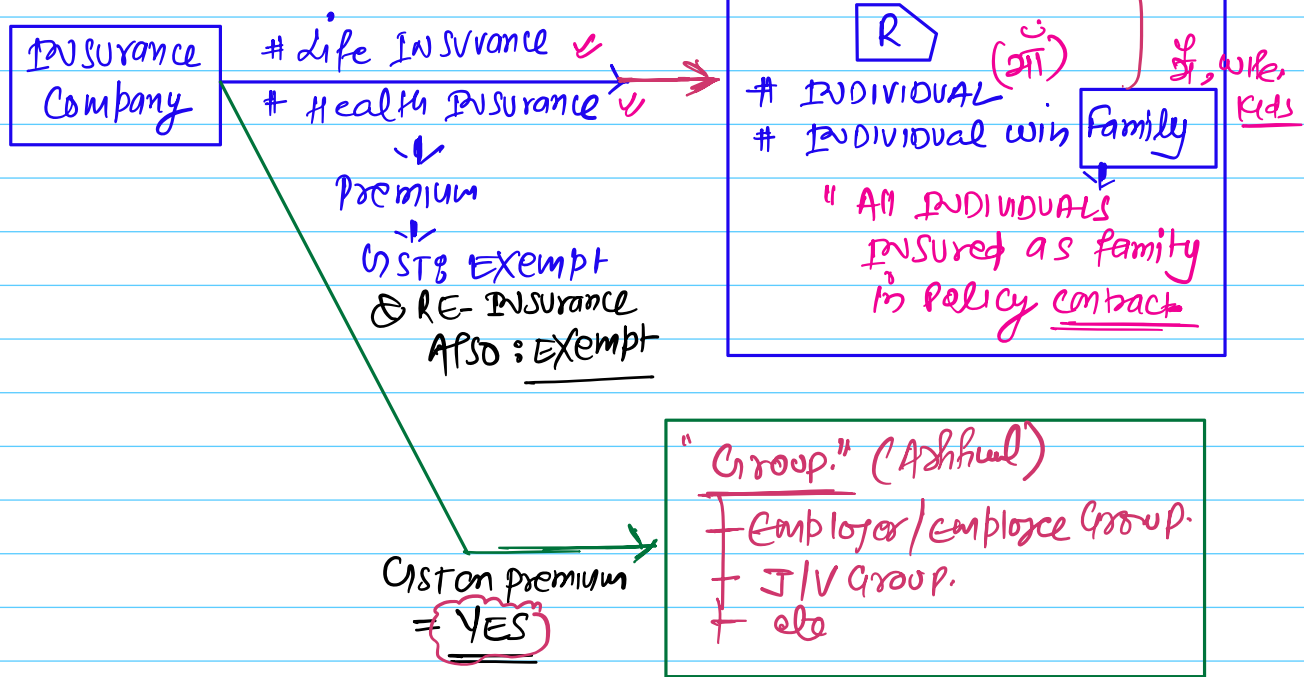 INSURANCE
Company
# Life INSURANCE
# Health INSURANCE
Premium
GST: EXempt
& RE-INSURANCE
Also : EXempt
R
(माँ)
# INDIVIDUAL
# INDIVIDUAL with Family
मैं, wife,
Kids
" All INDIVIDUALS
INSURed as family
in Policy contract
GST on premium
= YES
"Group."
Employer/employee Group.
J/V Group.
etc